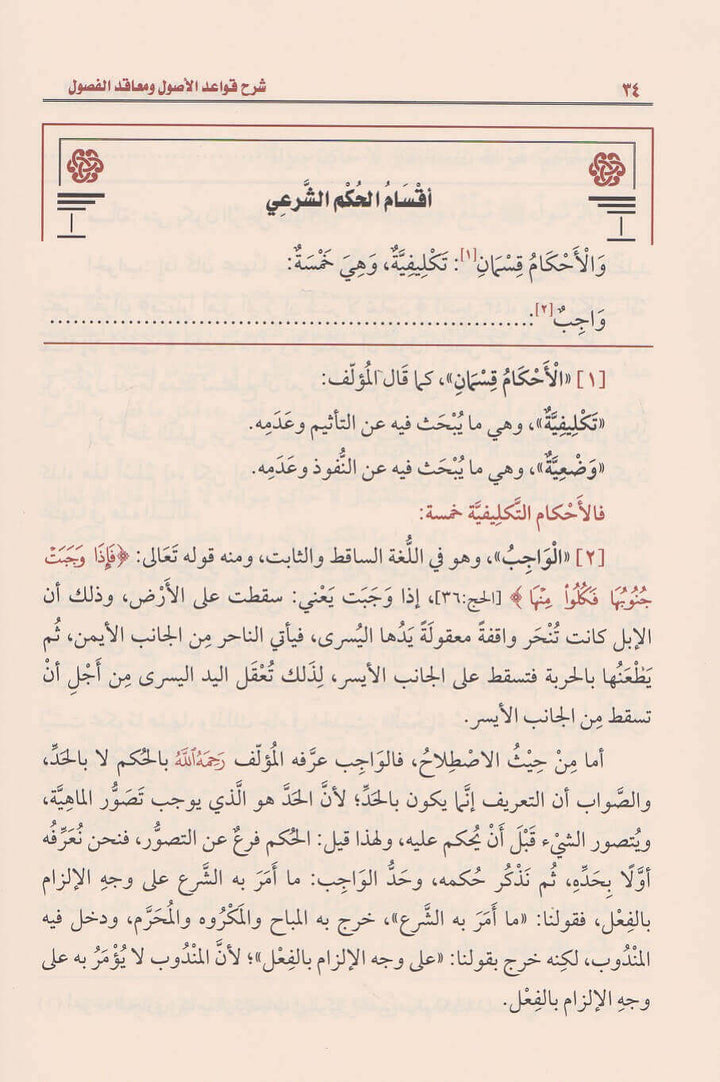 ٣٤
شرح قواعد الأصول ومعاقد الفصول
أقْسَامُ الحُكْمِ الشَّرعِي
وَالْأَحْكَامُ قِسْمَانِ[١]: تَكْلِيفِيَّةٌ، وَهِيَ خَمْسَةٌ:
وَاجِبٌ[٢]: ............................................................
[١] «الْأَحْكَامُ قِسْمَانِ»، كما قَال المُؤلِّف:
«تَكْلِيفِيَّةٌ»، وهي ما يُبْحَث فيه عن التأثيم وعَدَمِه.
«وَضْعِيَّةٌ»، وهي ما يُبْحَث فيه عن النُّفوذ وعَدَمِه.
فالأَحْكام التَّكلِيفيَّة خمسة:
[٢] «الْوَاجِبُ»، وهو في اللُّغة الساقط والثابت، ومنه قوله تَعَالى: ﴿فَإِذَا وَجَبَتْ
جُنُوبُهَا فَكُلُواْ مِنْهَا﴾ [الحج:٣٦]، إذا وَجَبَت يَعْني: سقطت على الأَرْض، وذلك أن
الإبل كانت تُنْحَر واقفةً معقولَةً يَدُها اليُسرى، فيأتي الناحر مِن الجانب الأيمن، ثُم
يَطْعَنُها بالحربة فتسقط على الجانب الأيسر، لِذَلك تُعْقَل اليد اليسرى مِن أَجْلِ أنْ
تسقط مِن الجانب الأيسر.
أما مِنْ حيْثُ الاصْطِلاحُ، فالوَاجِب عرَّفه المُؤلِّف رَحِمَهُ ٱللَّهُ بالحُكم لا بالحَدِّ،
والصَّواب أن التعريف إنَّما يكون بالحَدِّ؛ لأنَّ الحَدَّ هو الَّذي يوجب تَصَوُّر الماهِيَّة،
ويُتصور الشيْء قَبْلَ أَنْ يُحكم عليه، ولهذا قيل: الحُكم فرعٌ عن التصوُّر، فنحن نُعَرِّفُه
أوَّلًا بِحَدِّهِ، ثُم نَذْكُر حُكمه، وحَدُّ الواجِب: ما أَمَرَ به الشَّرع على وجهِ الإلزام
بالفِعْل، فقولنا: «ما أَمَرَ به الشَّرع»، خرج به المباح والمَكْروه والمُحَرَّم، ودخل فيه
المَنْدُوب، لكِنه خرج بقولنا: «على وجه الإلزام بالفِعْل»؛ لأنَّ المَنْدُوب لا يُؤْمَرُ به على
وجهِ الإلزام بالفِعْل.